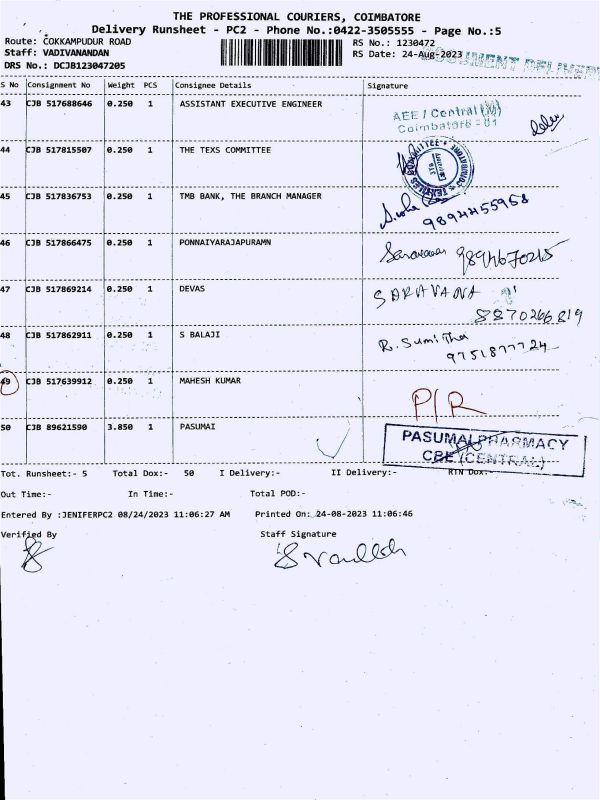 THE PROFESSIONAL COURIERS, COIMBATORE
Delivery Runsheet - PC2 - Phone No.:0422-3505555 - Page No.:5
Route: COKKAMPUDUR ROAD
RS No.: 1230472
Staff: VADIVANANDAN
RS Date: 24-Aug-2023
DRS No.: DCJB123047205
S No Consignment No Weight PCS Consignee Details Signature
43 CJB 517688646 0.250 1 ASSISTANT EXECUTIVE ENGINEER
AEE / Central
Coimbatore - 01
44 CJB 517815507 0.250 1 THE TEXS COMMITTEE
45 CJB 517836753 0.250 1 TMB BANK, THE BRANCH MANAGER
9894455968
46 CJB 517866475 0.250 1 PONNAIYARAJAPURAMN
Saravanan 9894670215
47 CJB 517869214 0.250 1 DEVAS
SARAVANA
8870266819
48 CJB 517862911 0.250 1 S BALAJI
R. Sumitha
9751877724
49 CJB 517639912 0.250 1 MAHESH KUMAR
P/R
50 CJB 89621590 3.850 1 PASUMAI
PASUMAI PHARMACY
CBE (CENTRAL)
Tot. Runsheet:- 5 Total Dox:- 50 I Delivery:- II Delivery:- RTN Dox:-
Out Time:- In Time:- Total POD:-
Entered By :JENIFERPC2 08/24/2023 11:06:27 AM Printed On: 24-08-2023 11:06:46
Verified By Staff Signature